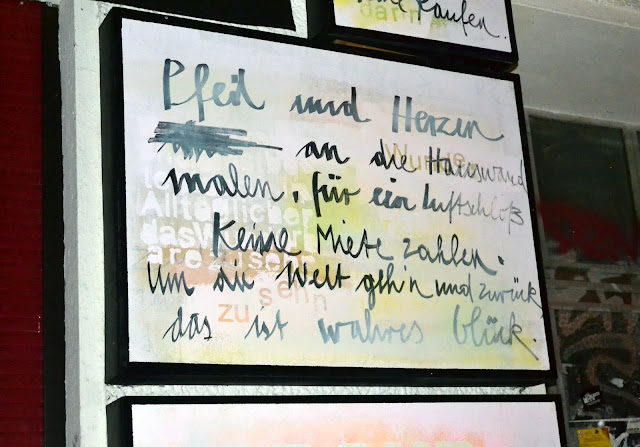 Kaufen.
Pfeil und Herzen
an die Hauswand
malen. für ein Luftschloß
Keine Miete zahlen.
Um die Welt geh'n und zurück
das ist wahres Glück.
Wunde
Alltäglicher
zu sehn